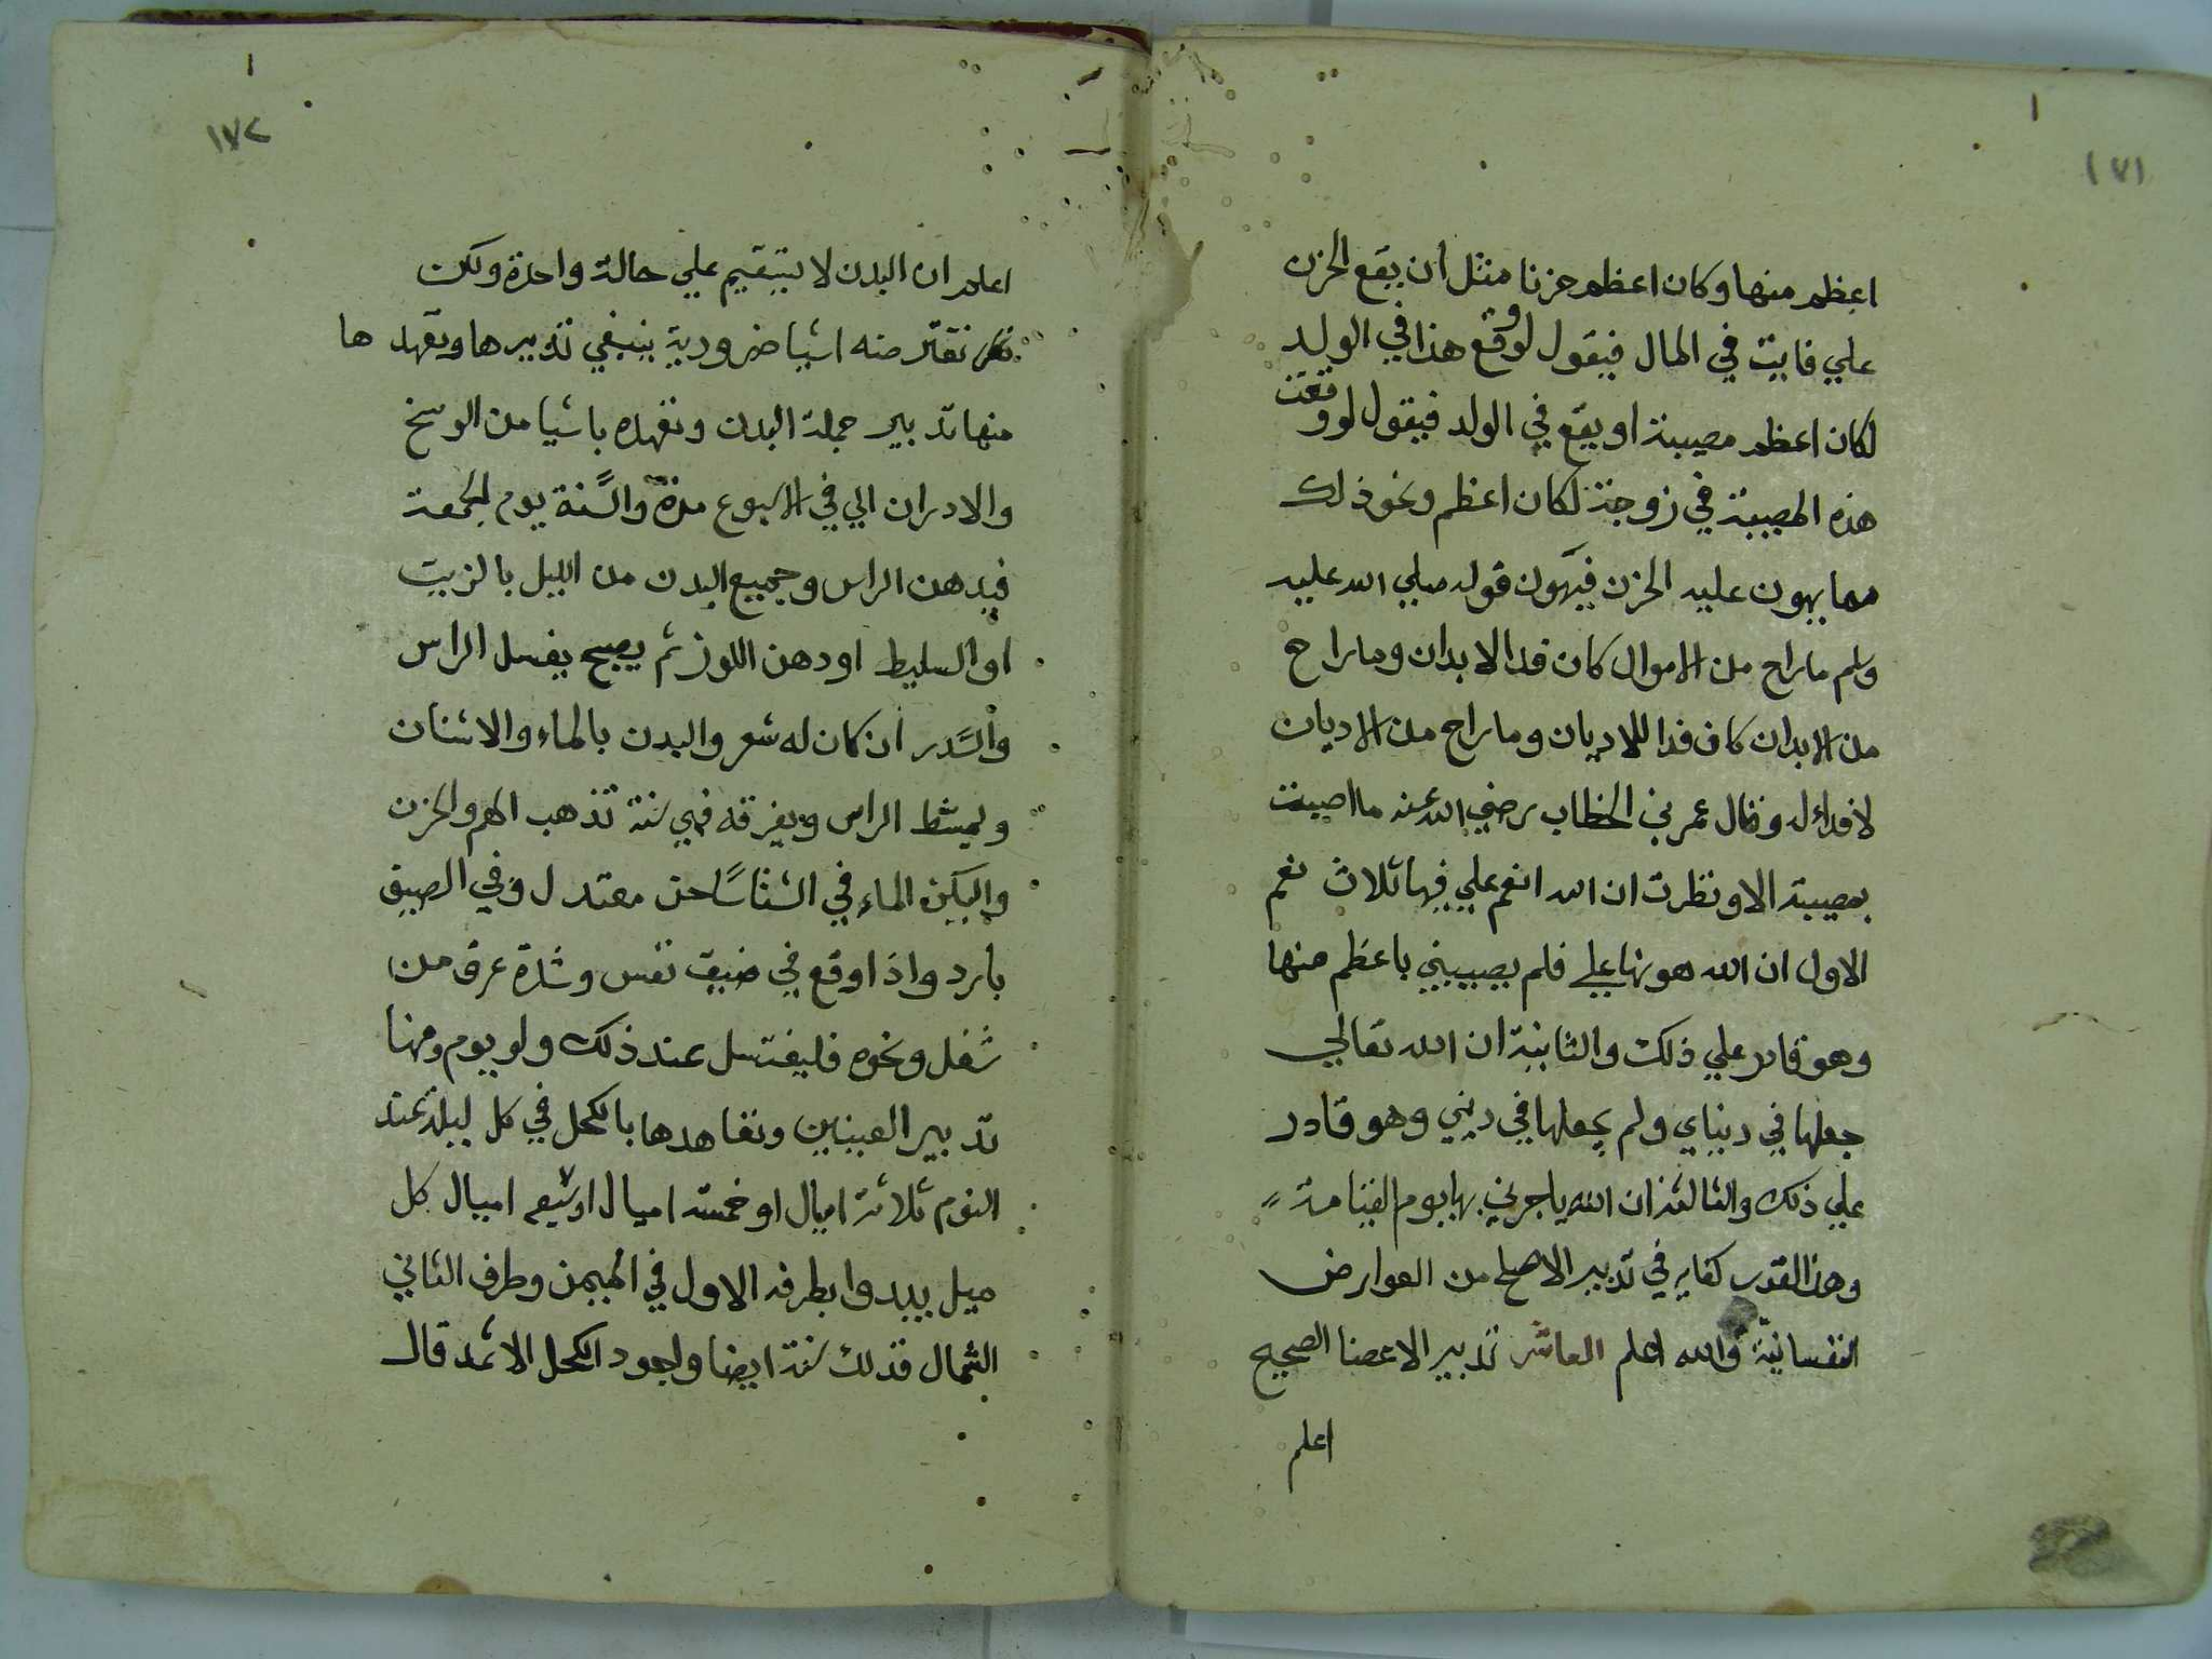 ١٧١
اعظم منها وكان اعظم حزنا مثل ان يقع الحزن
علي فايت في المال فيقول لو وقع هذا في الولد
لكان اعظم مصيبة او يقع في الولد فيقول لو وقعت
هذه المصيبة في زوجة لكان اعظم ونحو ذلك
مما يهون عليه الحزن فيهون قوله صلي الله عليه
وسلم ما راح من الاموال كان فدا الابدان وما راح
من الابدان كان فدا للاديان وما راح من الاديان
لا فداء له وقال عمر بن الخطاب رضي الله عنه ما اصبت
بمصيبة الا ونظرت ان الله انعم علي فيها ثلاث نعم
الاول ان الله هونها علي فلم يصيبني باعظم منها
وهو قادر علي ذلك والثانية ان الله تعالي
جعلها في دنياي ولم يجعلها في ديني وهو قادر
علي ذلك والثالثة ان الله ياجرني بها يوم القيامة
وهذا القدر كفايه في تدبير الاصلح من العوارض
النفسانية والله اعلم العاشر تدبير الاعضا الصحيح
اعلم
١٧٢
اعلم ان البدن لا يستقيم علي حالة واحدة ولكن
تقتر منه اشيا ضرورية ينبغي تدبيرها وتعهدها
منها تدبير جملة البدن وتعهده باشيا من الوسخ
والادران الي في الاسبوع مرة والسنة يوم الجمعة
فيدهن الراس وجميع البدن من الليل بالزيت
او السليط او دهن اللوز ثم يصبح يغسل الراس
والسدر ان كان له شعر والبدن بالماء والاشنان
ويمشط الراس ويفرقه فهي سنة تذهب الهم والحزن
وليكن الماء في الشتا ساخن معتدل وفي الصيف
بارد واذا وقع في ضيق نفس وشدة عرق من
شغل ونحوه فليغتسل عند ذلك ولو يوم ومنها
تدبير العينين وتعاهدها بالكحل في كل ليلة عند
النوم ثلاثة اميال او خمسة اميال او سبع اميال كل
ميل يبدوا بطرفه الاول في اليمن وطرف الثاني
الشمال فذلك سنة ايضا واجود الكحل الاثمد قال